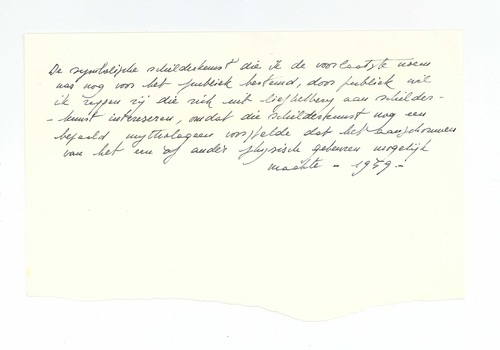 De symbolische schilderkunst die ik de voorlaatste noem
was nog voor het publiek bestemd, door publiek wil
ik zeggen zij die zich uit liefhebberij aan schilder-
-kunst interesseren, omdat die schilderkunst nog een
bepaald mythologeen voorstelde dat het aanschouwen
van het een of ander physische gebeuren mogelijk
maakte - 1959 -